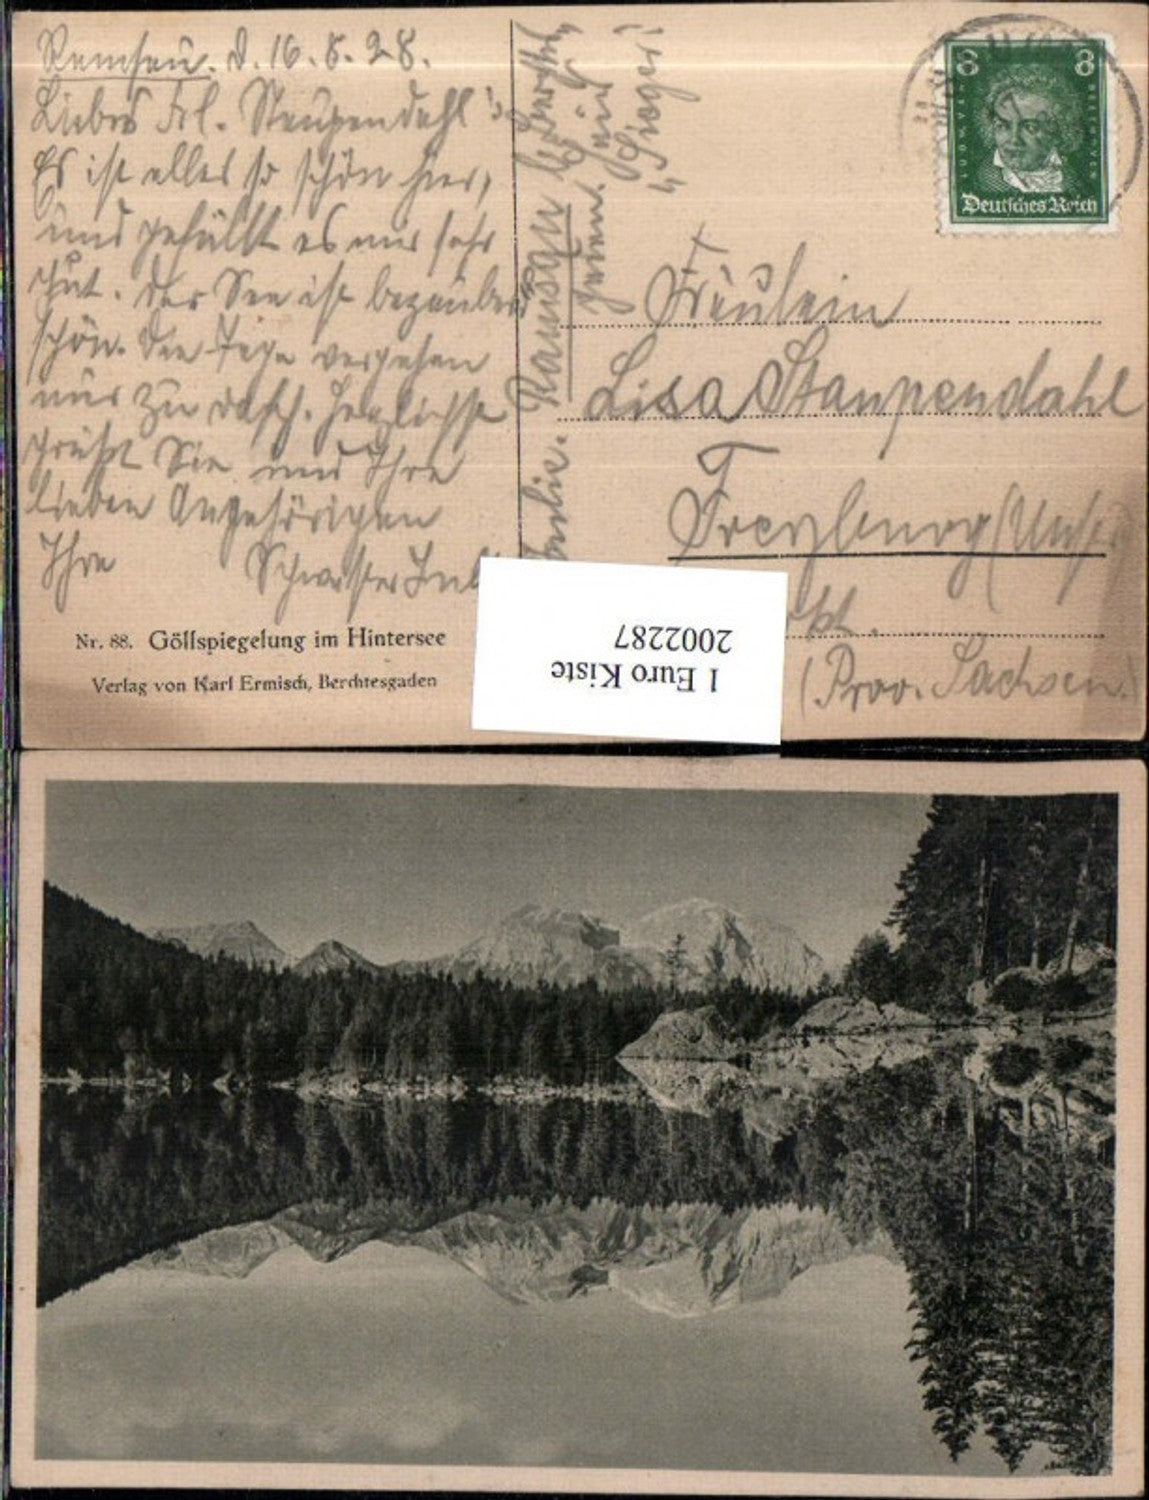 Ramsau. d. 16.8.28.
Liebes Frl. Staupendahl!
Es ist alles so schön hier,
und gefällt es mir sehr
gut. Der See ist bezaubernd
schön. Die Tage vergehen
nur zu rasch. Herzlichst
grüßt Sie und Ihre
lieben Angehörigen
Ihre Schwester
Ramsau b/Berchtesg
Fräulein
Lisa Staupendahl
Freyburg (Unstr
(Prov. Sachsen.)
8 8
Deutsches Reich
Nr. 88. Göllspiegelung im Hintersee
Verlag von Karl Ermisch, Berchtesgaden
1 Euro Kiste
2002287